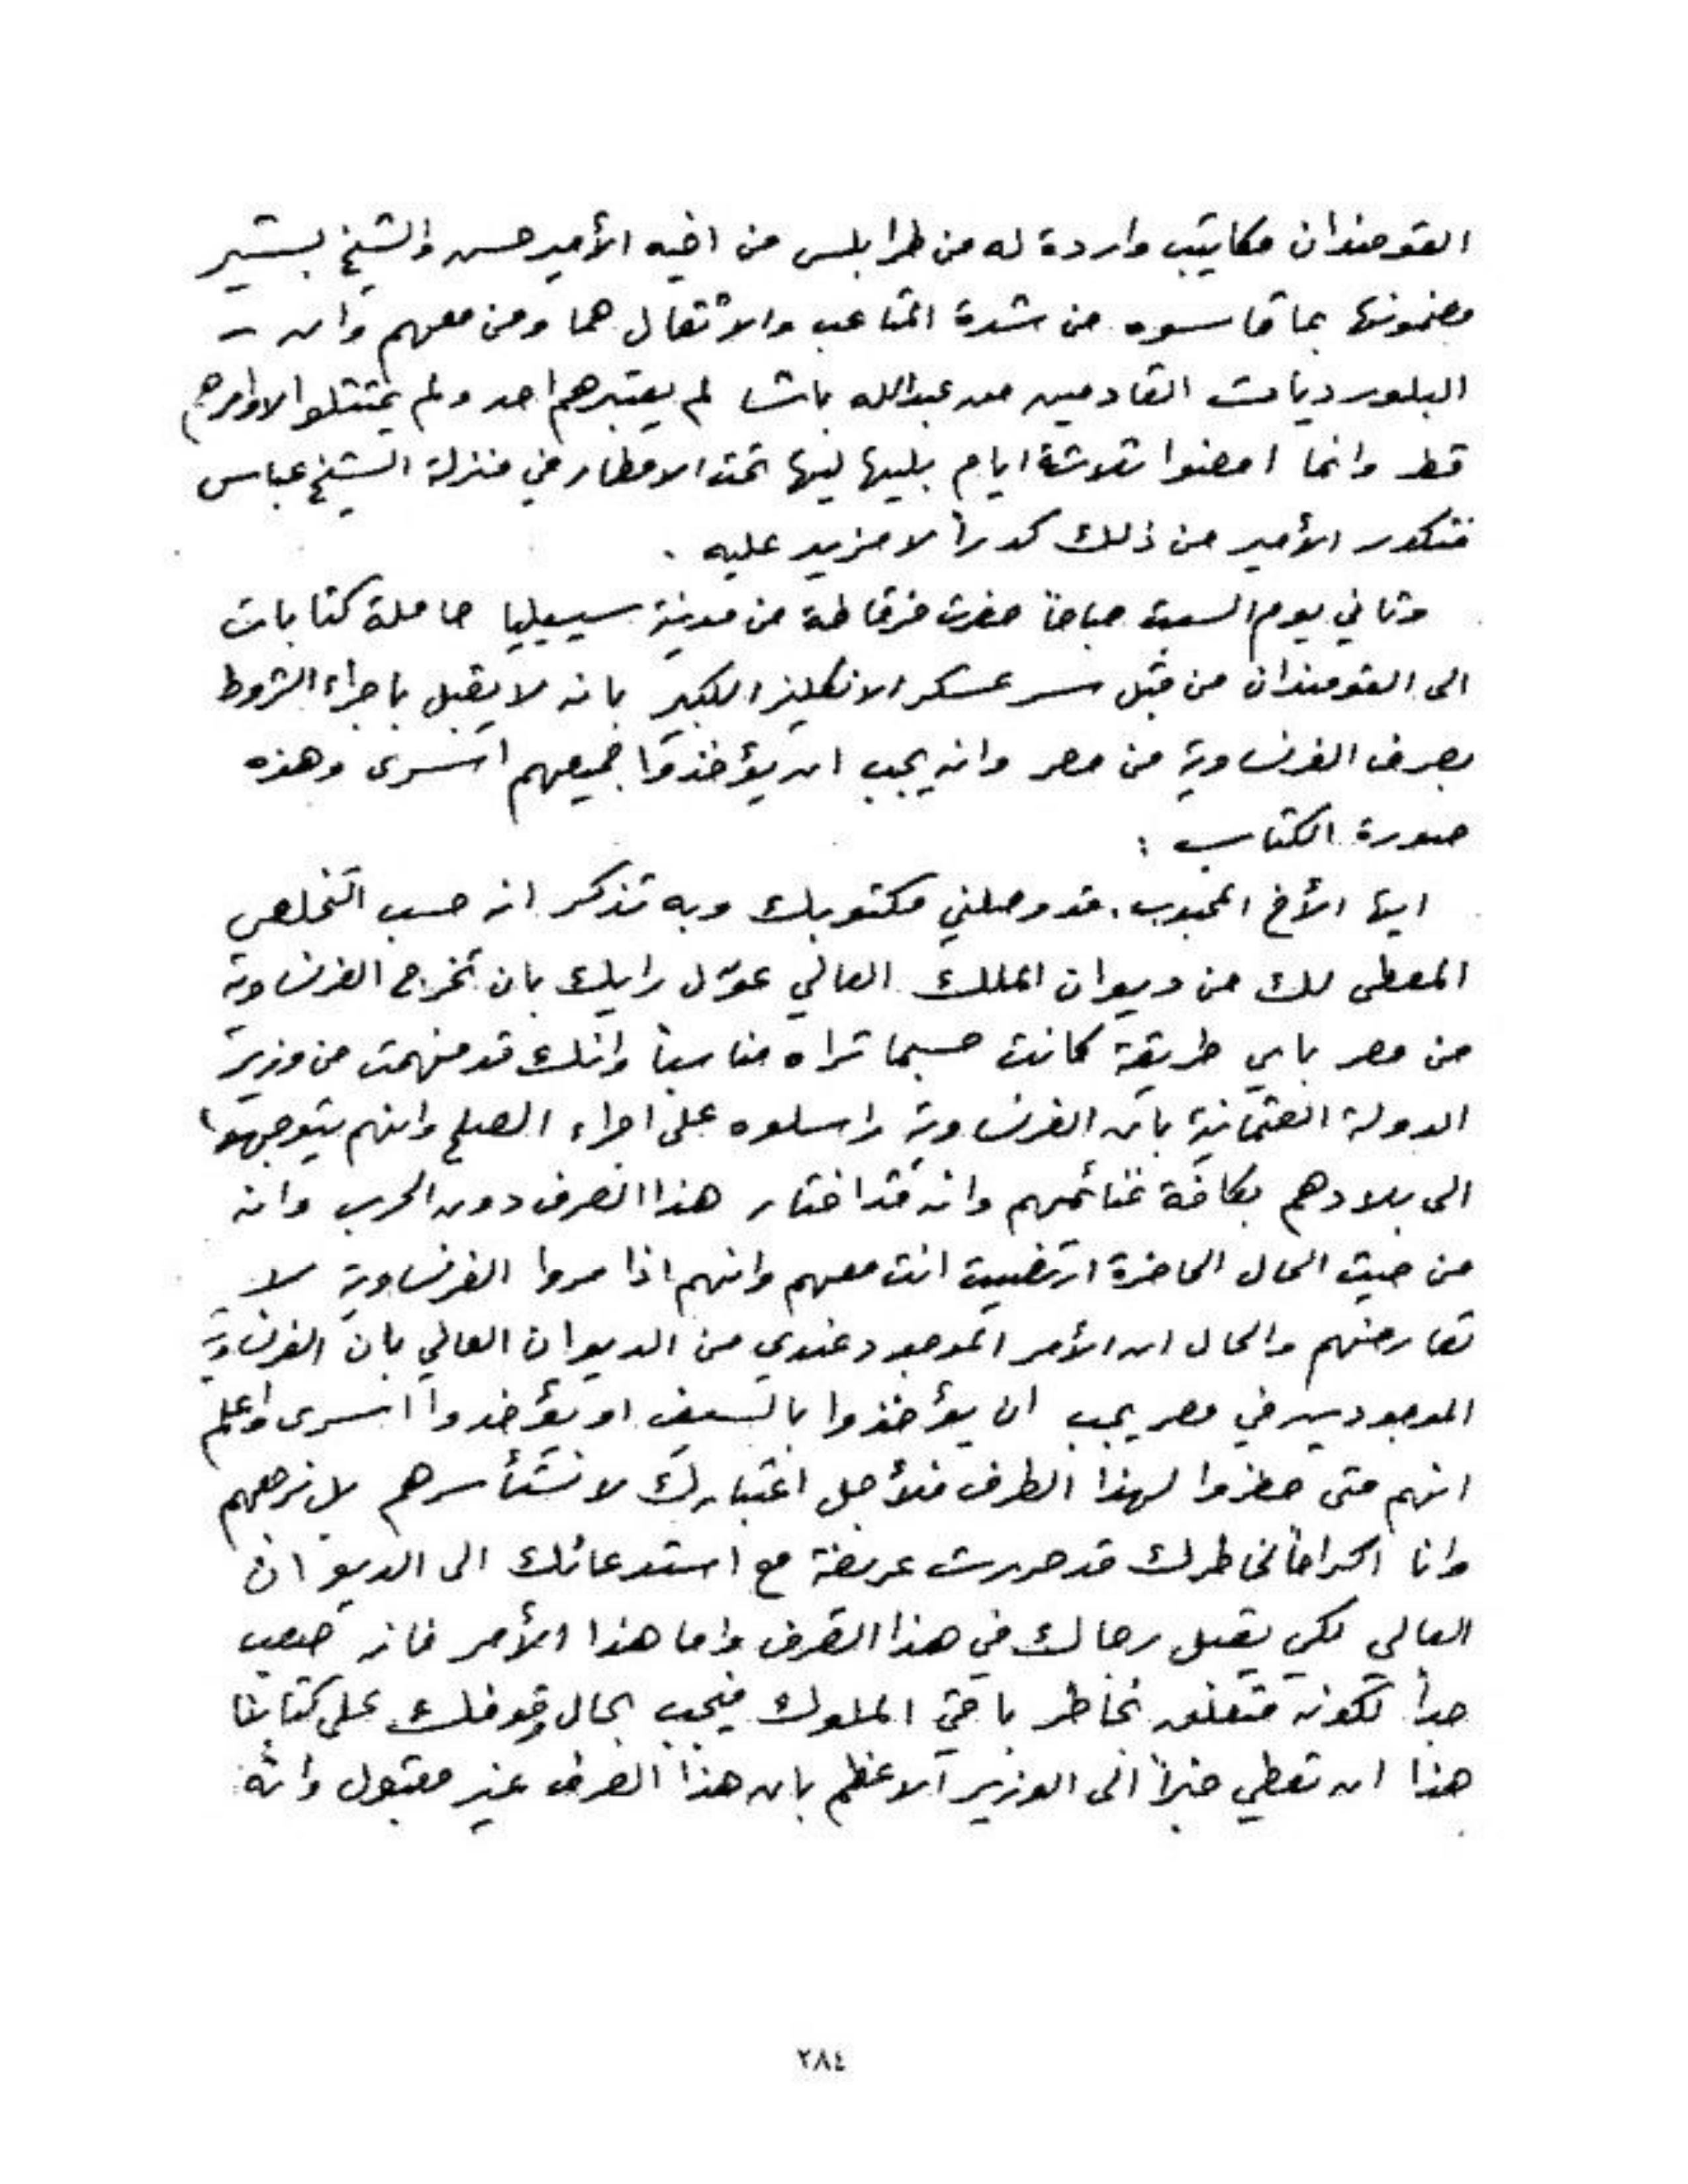 القومندان مكاتيب واردة له من طرابلس من اخيه الأمير حسن والشيخ بشير
مضمونها بما قاسوه من شدة المتاعب والاثقال هما ومن معهم وان
البلورديات القادمين من عبدالله باشا لم يعتبرهم احد ولم يمتثلوا لاوامرهم
قط وانما امضوا ثلاثة ايام بلياليها تحت الامطار في منزلة الشيخ عباس
فتكدر الأمير من ذلك كدراً لا مزيد عليه .
وثاني يوم السبت صباحاً حضرت فرقاطة من مدينة سيبيليا حاملة كتابات
الى القومندان من قبل سر عسكر الانكليز الكبير بانه لا يقبل باجراء الشروط
بصرف الفرنساوية من مصر وانه يجب ان يؤخذوا جميعهم اسرى وهذه
صورة الكتاب :
ايها الأخ المحبوب . قد وصلني مكتوبك وبه تذكر انه حسب التخلص
المعطى لك من ديوان الملك العالي عوّل رايك بان تخرج الفرنساوية
من مصر باي طريقة كانت حسبما تراه مناسباً وانك قد فهمت من وزير
الدولة العثمانية بان الفرنساوية راسلوه على اجراء الصلح وانهم يتوجهوا
الى بلادهم بكافة غنائمهم وانه قد اختار هذا الصرف دون الحرب وانه
من حيث الحال الحاضرة ارتضيت انت معهم وانهم اذا مروا الفرنساوية لا
تعارضهم والحال ان الأمر الموجود عندي من الديوان العالي بان الفرنساوية
الموجودين في مصر يجب ان يؤخذوا بالسيف او يؤخذوا اسرى واعلم
انهم متى حضروا لهذا الطرف فلأجل اعتبارك لا نستأسرهم بل نرجعهم
وانا اكراماً لخاطرك قد حررت عريضة مع استدعائك الى الديوان
العالي لكي يقبل رجاك في هذا الصرف واما هذا الأمر فانه صعب
جداً لكونه متعلق بخاطر باقي الملوك فيجب بحال وقوفك على كتابنا
هذا ان تعطي خبراً الى الوزير الاعظم بان هذا الصرف غير مقبول وانه
٢٨٤